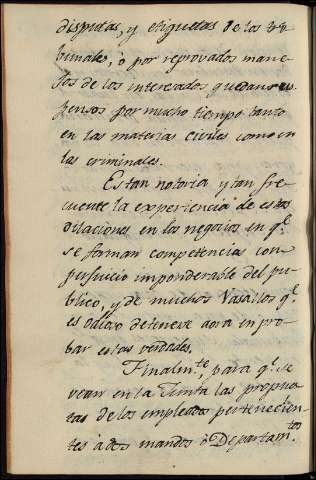 disputas, y etiquetas de los tri
bunales, ò por reprovados mane
jos de los interesados quedan sus
pensos por mucho tiempo tanto
en las materias civiles como en
las criminales.
Es tan notoria y tan fre
cuente la experiencia de estas
dilaciones en los negocios en q.ᵉ
se forman competencias con
perjuicio imponderable del pu
blico, y de muchos Vasallos q.ᵉ
es ocioso detenerse aora en pro
bar estas verdades.
Finalm.ᵗᵉ, para q.ᵉ se
vean en la Junta las propues
tas de los empleados pertenecien
tes à dos mandos ò Departam.ᵗᵒˢ